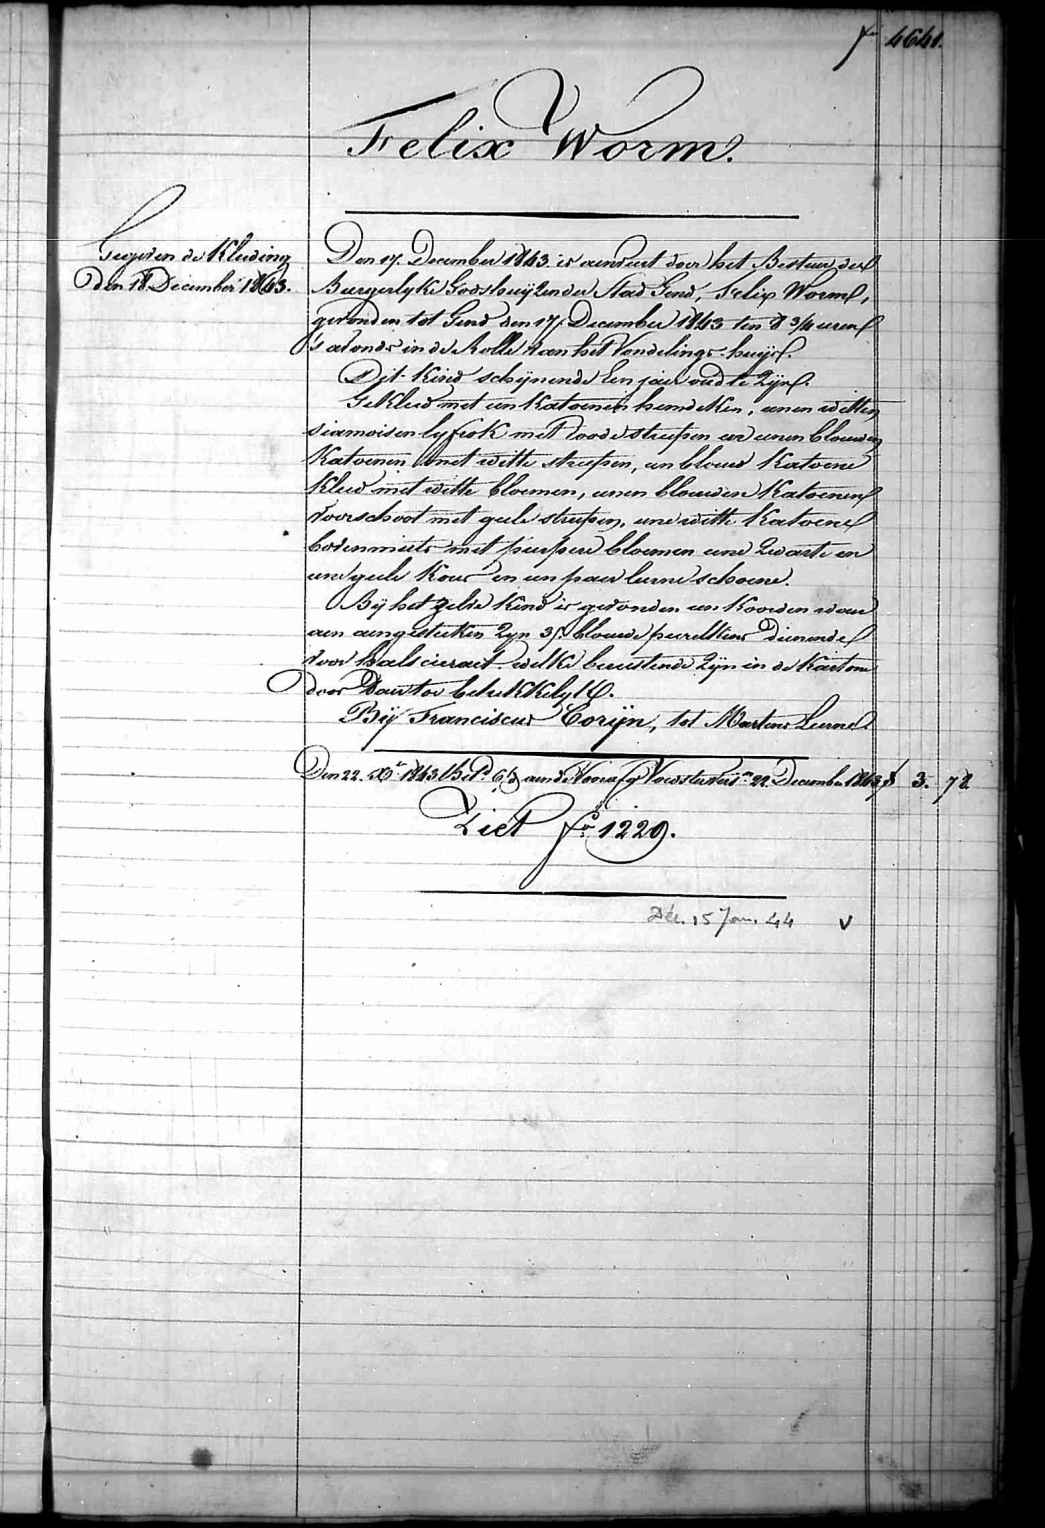 fo 4641.
Felix Worm.
Gegeven de Kleeding
Den 18 December 1843.
Den 17. December 1843 is aenveert door het Bestuer der
Burgerlyke Godshuijzen der Stad Gend, Felix Worm,
gevonden tot Gend den 17 December 1843 ten 8 3/4 uren
's avonds in de Rolle van het Vondelings-huijs.
Dit Kind schijnende een jaer oud te zijn.
Gekleed met een Katoenen hemdeken, eenen witten
siamoisen lyfrok met roode streepen en eenen blouwen
Katoenen met witte streepen, een blouw Katoene
Kleed met witte bloemen, eenen blouwen Katoenen
voorschoot met geele streepen, eene witte Katoene
bovenmuts met purpere bloemen eene zwarte en
eene geele Kous en een paer leerne schoene.
Bij het zelve Kind is gevonden een Koorden waer
aen aengesteeken zyn 35. blouwe peirelkens dienende
voor halscieraet welke berustende zijn in de Kartons
door daer toe betrekkelyk.
Bij Franciscus Corijn, tot Martens Leerne
Den 22. Xr 1843 Betd aen de Voedster 22 December 1843 f 3. 78
Ziet fo 1229.
Déc. 15 Jan. 44 v